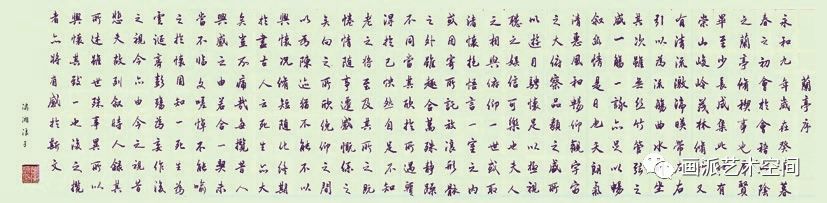 蘭亭序
永和九年歲在癸丑暮
春之初會於會稽山陰
之蘭亭修禊事也群賢
畢至少長咸集此地有
崇山峻嶺茂林修竹又
有清流激湍映帶左右
引以為流觴曲水列坐
其次雖無絲竹管弦之
盛一觴一詠亦足以暢
敘幽情是日也天朗氣
清惠風和暢仰觀宇宙
之大俯察品類之盛所
以遊目騁懷足以極視
聽之娛信可樂也夫人
之相與俯仰一世或取
諸懷抱悟言一室之內
或因寄所託放浪形骸
之外雖趣舍萬殊靜躁
不同當其欣於所遇暫
得於己快然自足不知
老之將至及其所之既
惓情隨事遷感慨係之
矣向之所欣俛仰之間
以為陳跡猶不能不以之
興懷況修短隨化終期
於盡古人云死生亦大
矣豈不痛哉每攬昔人
興感之由若合一契未
嘗不臨文嗟悼不能喻
之於懷固知一死生為
虛誕齊彭殤為妄作後
之視今亦由今之視昔
悲夫故列敘時人錄其
所述雖世殊事異所以
興懷其致一也後之攬
者亦將有感於斯文
画派艺术空间